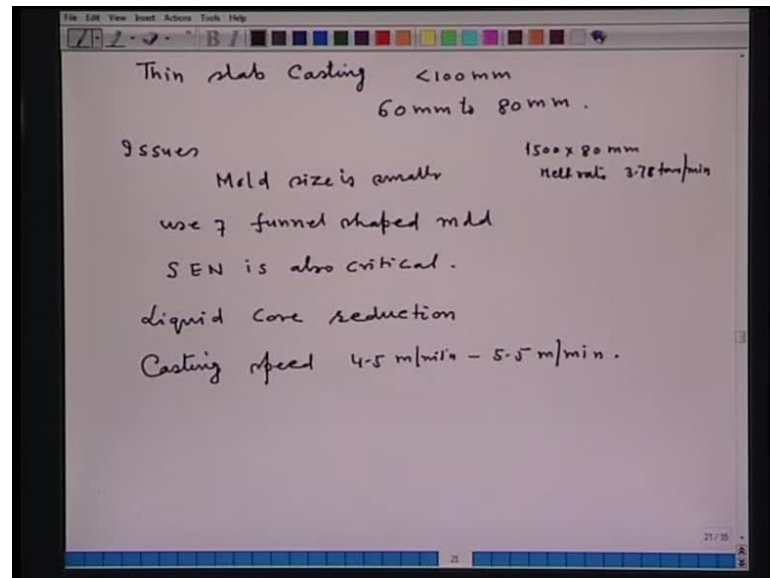 File Edit View Insert Actions Tools Help
B I
Thin slab Casting <100mm
60mm to 80mm.
Issues
1500 x 80 mm
Melt rate 3.78 ton/min
Mold size is smaller
use of funnel shaped mold
SEN is also critical.
Liquid core reduction
Casting speed 4.5 m/min - 5.5 m/min.
21/35
21